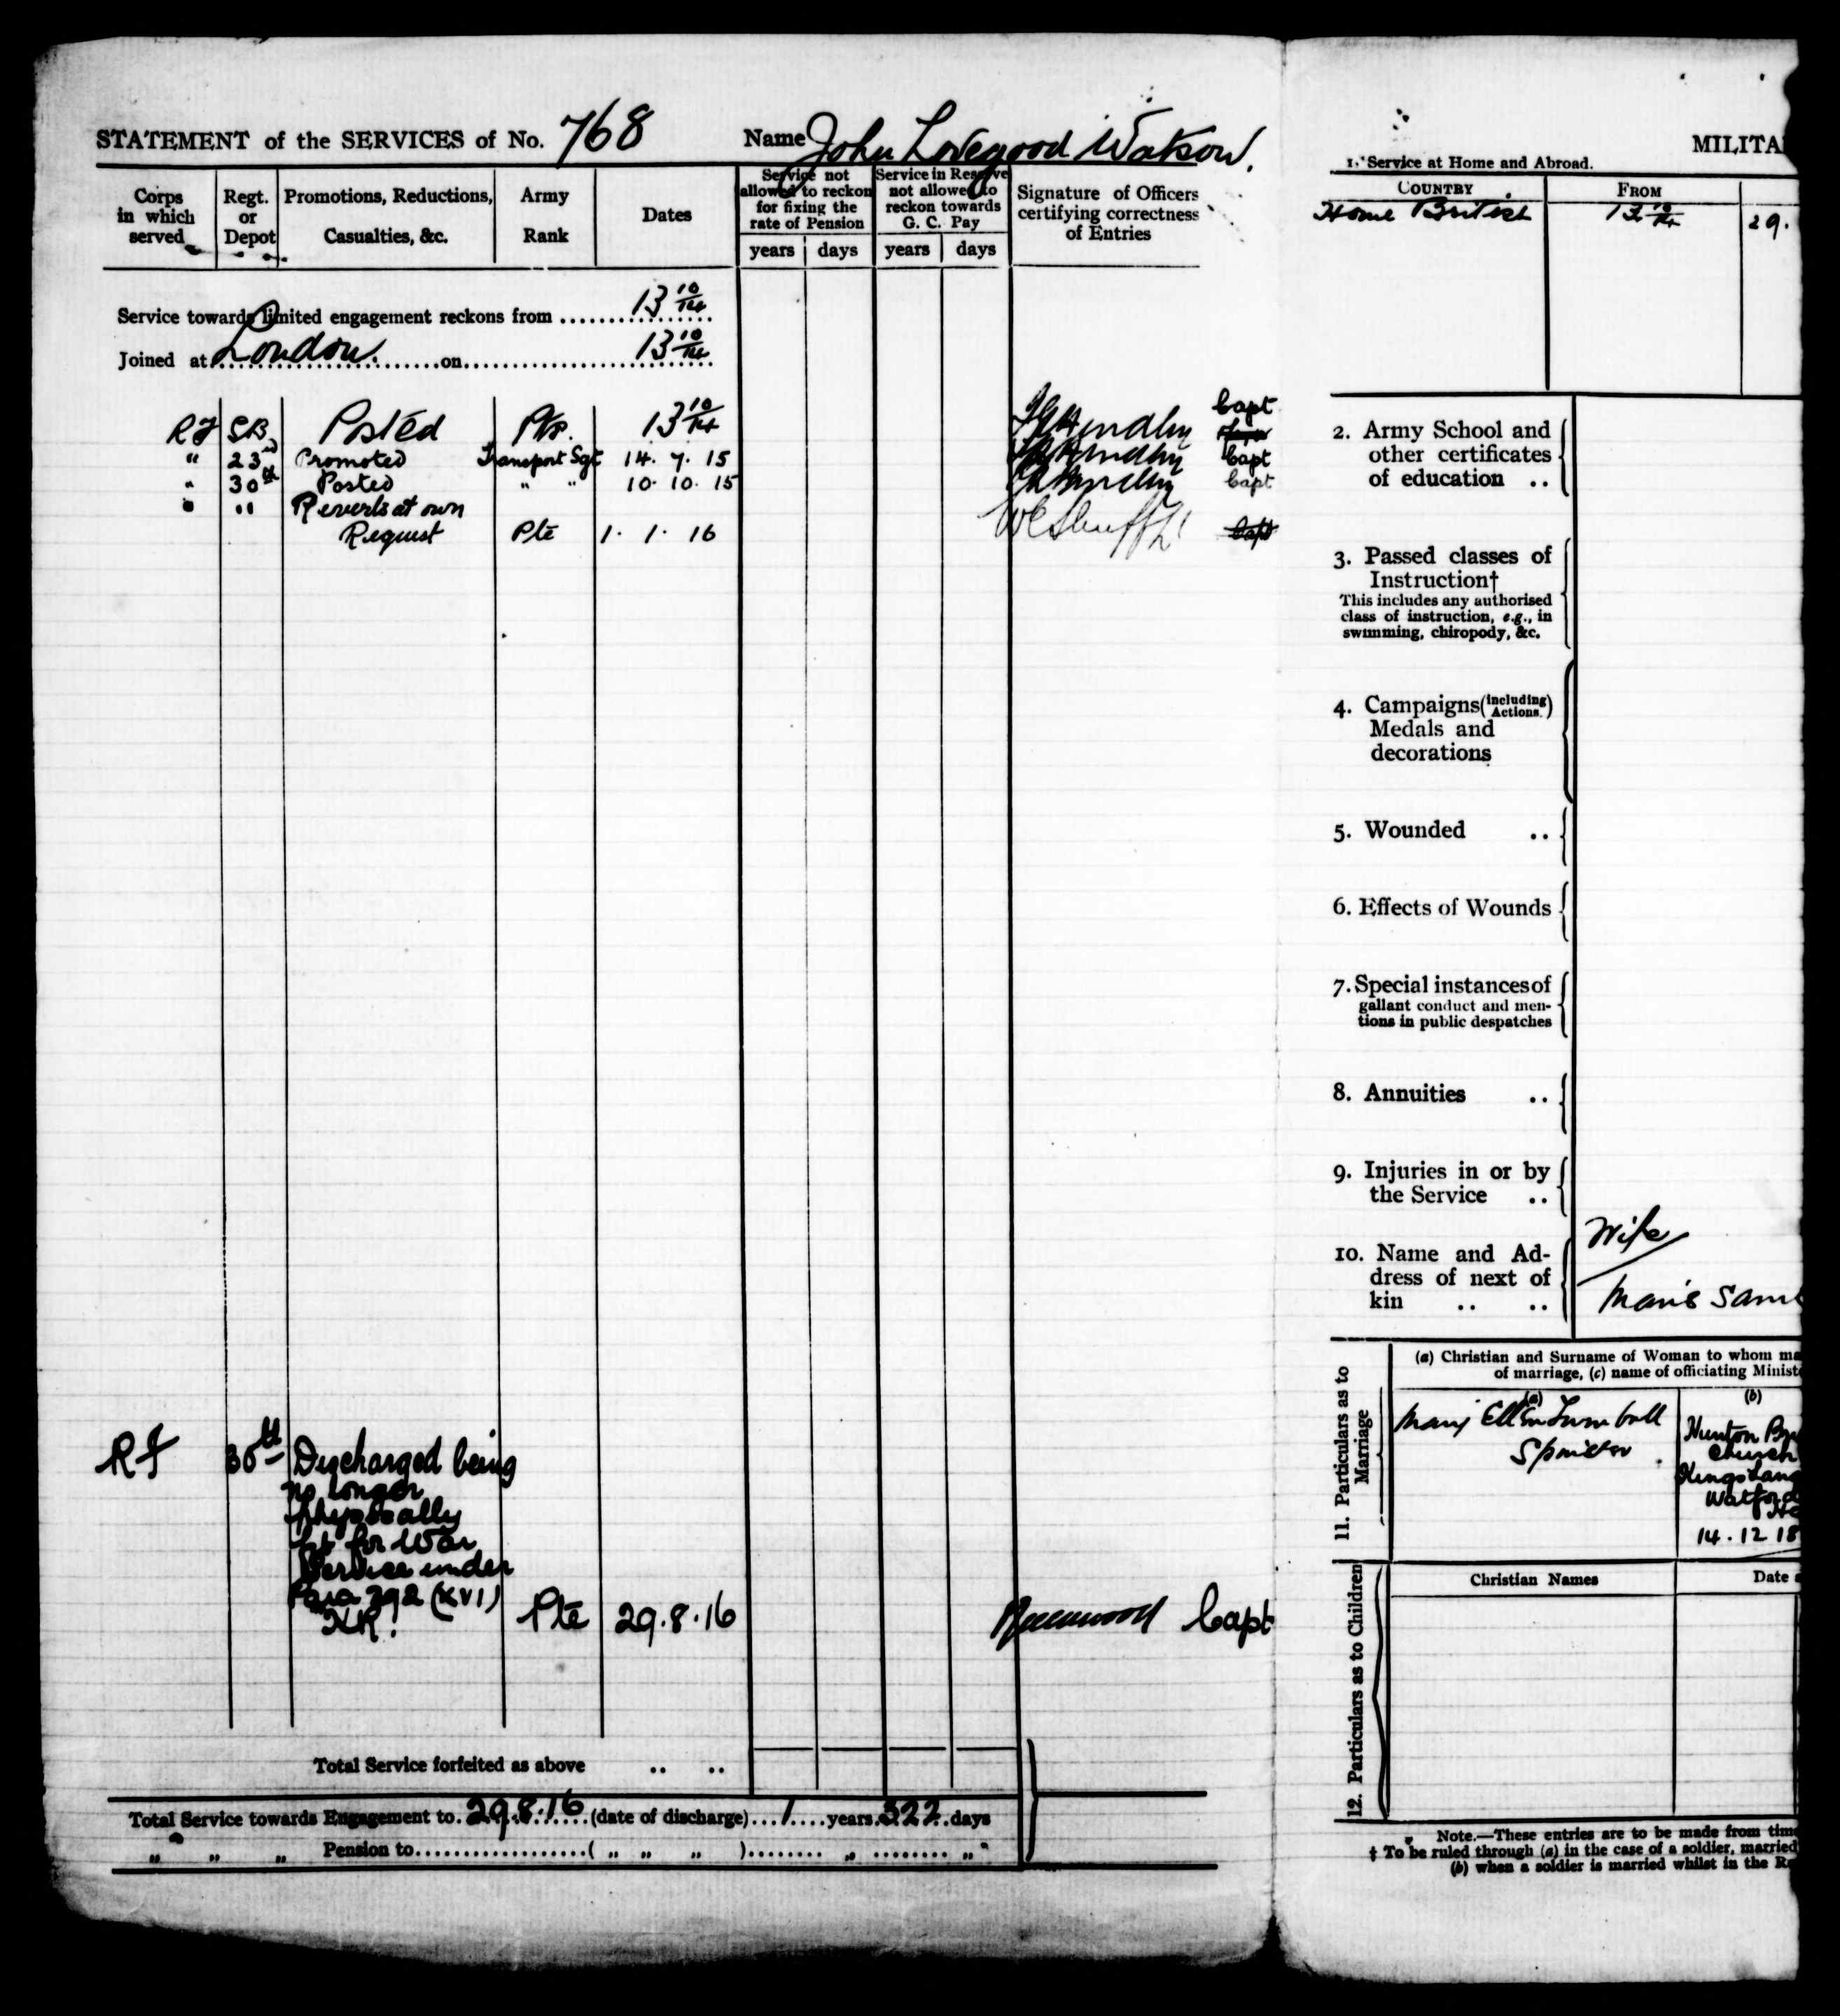 STATEMENT of the SERVICES of No. 768 Name John Lovegood Watson.
Corps in which served
Regt. or Depot
Promotions, Reductions, Casualties, &c.
Army Rank
Dates
Service not allowed to reckon for fixing the rate of Pension
years days
Service in Reserve not allowed to reckon towards G. C. Pay
years days
Signature of Officers certifying correctness of Entries
Service towards limited engagement reckons from ........ 13 10/14
Joined at London. on 13 10/14
RF SB Posted Pte. 13 10/14 Capt
" 23rd Promoted Transport Sgt 14. 7. 15 Capt
" 30th Posted " " 10. 10. 15 Capt
" " Reverts at own
Request Pte 1. 1. 16 Capt
RF 30th Discharged being
no longer
physically
fit for War
Service under
Para 392 (XVI)
KR. Pte 29.8.16 Capt
Total Service forfeited as above .. ..
Total Service towards Engagement to 29.8.16 (date of discharge) 1 years 322 days
" " " Pension to ........ ( " " " ) ........ " ........ "
MILITA
1. Service at Home and Abroad.
COUNTRY FROM
Home British 13 10/14 29.
2. Army School and
other certificates
of education ..
3. Passed classes of
Instruction†
This includes any authorised
class of instruction, e.g., in
swimming, chiropody, &c.
4. Campaigns (including Actions.)
Medals and
decorations
5. Wounded ..
6. Effects of Wounds
7. Special instances of
gallant conduct and men-
tions in public despatches
8. Annuities ..
9. Injuries in or by
the Service ..
10. Name and Ad-
dress of next of
kin .. ..
Wife
11. Particulars as to Marriage
(a) Christian and Surname of Woman to whom ma
of marriage, (c) name of officiating Minist
(a)
Mary Ellen Turnbull
Spinster
(b)
Hunton
Church
Kings Lang
Watford
14.12 18
12. Particulars as to Children
Christian Names Date
Note.—These entries are to be made from time
† To be ruled through (a) in the case of a soldier, married
(b) when a soldier is married whilst in the Re